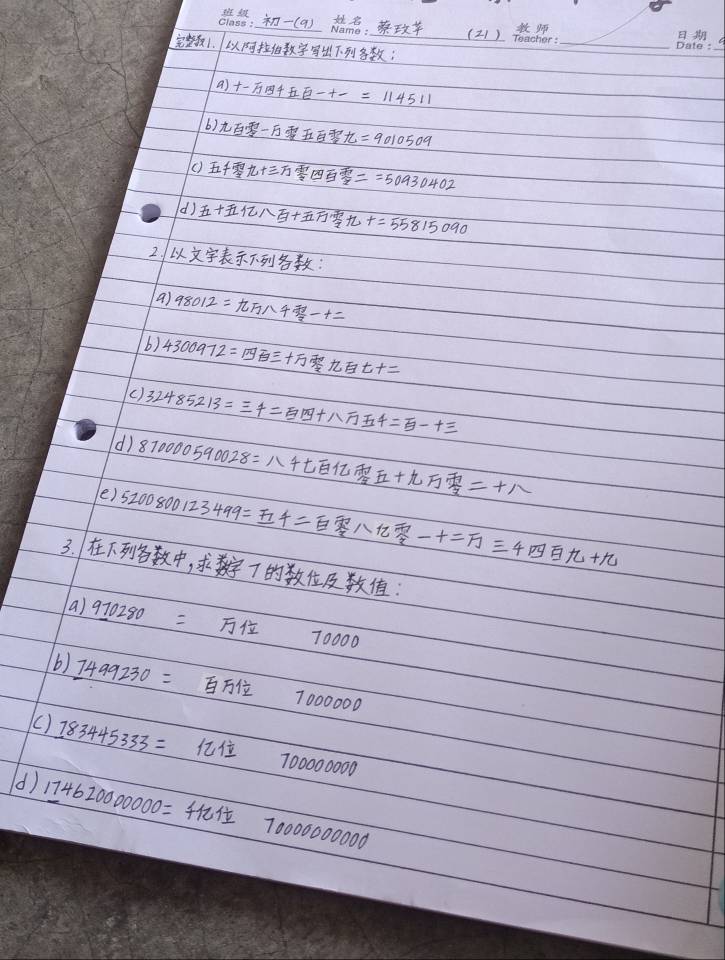 班级 Class: 初一(9) 姓名 Name: 蔡玟苹 (21) 教师 Teacher: 日期 Date:
完整数1. 以阿拉伯数字写出下列各数:
a) 十一万四千五百一十一 = 114511
b) 九百零一万零五百零九 = 9010509
c) 五千零九十三万零四百零二 = 50930402
d) 五十五亿八百十五万零九十 = 55815090
2. 以文字表示下列各数:
a) 98012 = 九万八千零一十二
b) 4300972 = 四百三十万零九百七十二
c) 32485213 = 三千二百四十八万五千二百一十三
d) 870000590028 = 八千七百亿零五十九万零二十八
e) 5200800123499 = 五千二百零八亿零一十二万三千四百九十九
3. 在下列各数中,求数字7的数位及数值:
a) 970280 = 万位 70000
b) 7499230 = 百万位 7000000
c) 783445333 = 亿位 700000000
d) 174620000000 = 千亿位 70000000000